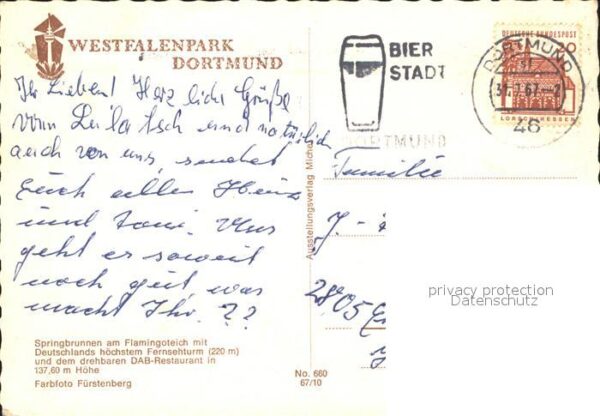 WESTFALENPARK
DORTMUND
Ihr Lieben! Herzliche Grüße
vom und natürlich
auch von uns, sendet
Euch allen Heinz
und Toni. Uns
geht es soweit
noch gut, was
macht Ihr. ??
Springbrunnen am Flamingoteich mit
Deutschlands höchstem Fernsehturm (220 m)
und dem drehbaren DAB-Restaurant in
137,60 m Höhe
Farbfoto Fürstenberg
Ausstellungsverlag Michel
No. 660
67/10
BIER
STADT
DORTMUND
DEUTSCHE BUNDESPOST
20
LORSCH/HESSEN
DORTMUND
46
Familie
J.
2805
privacy protection
Datenschutz